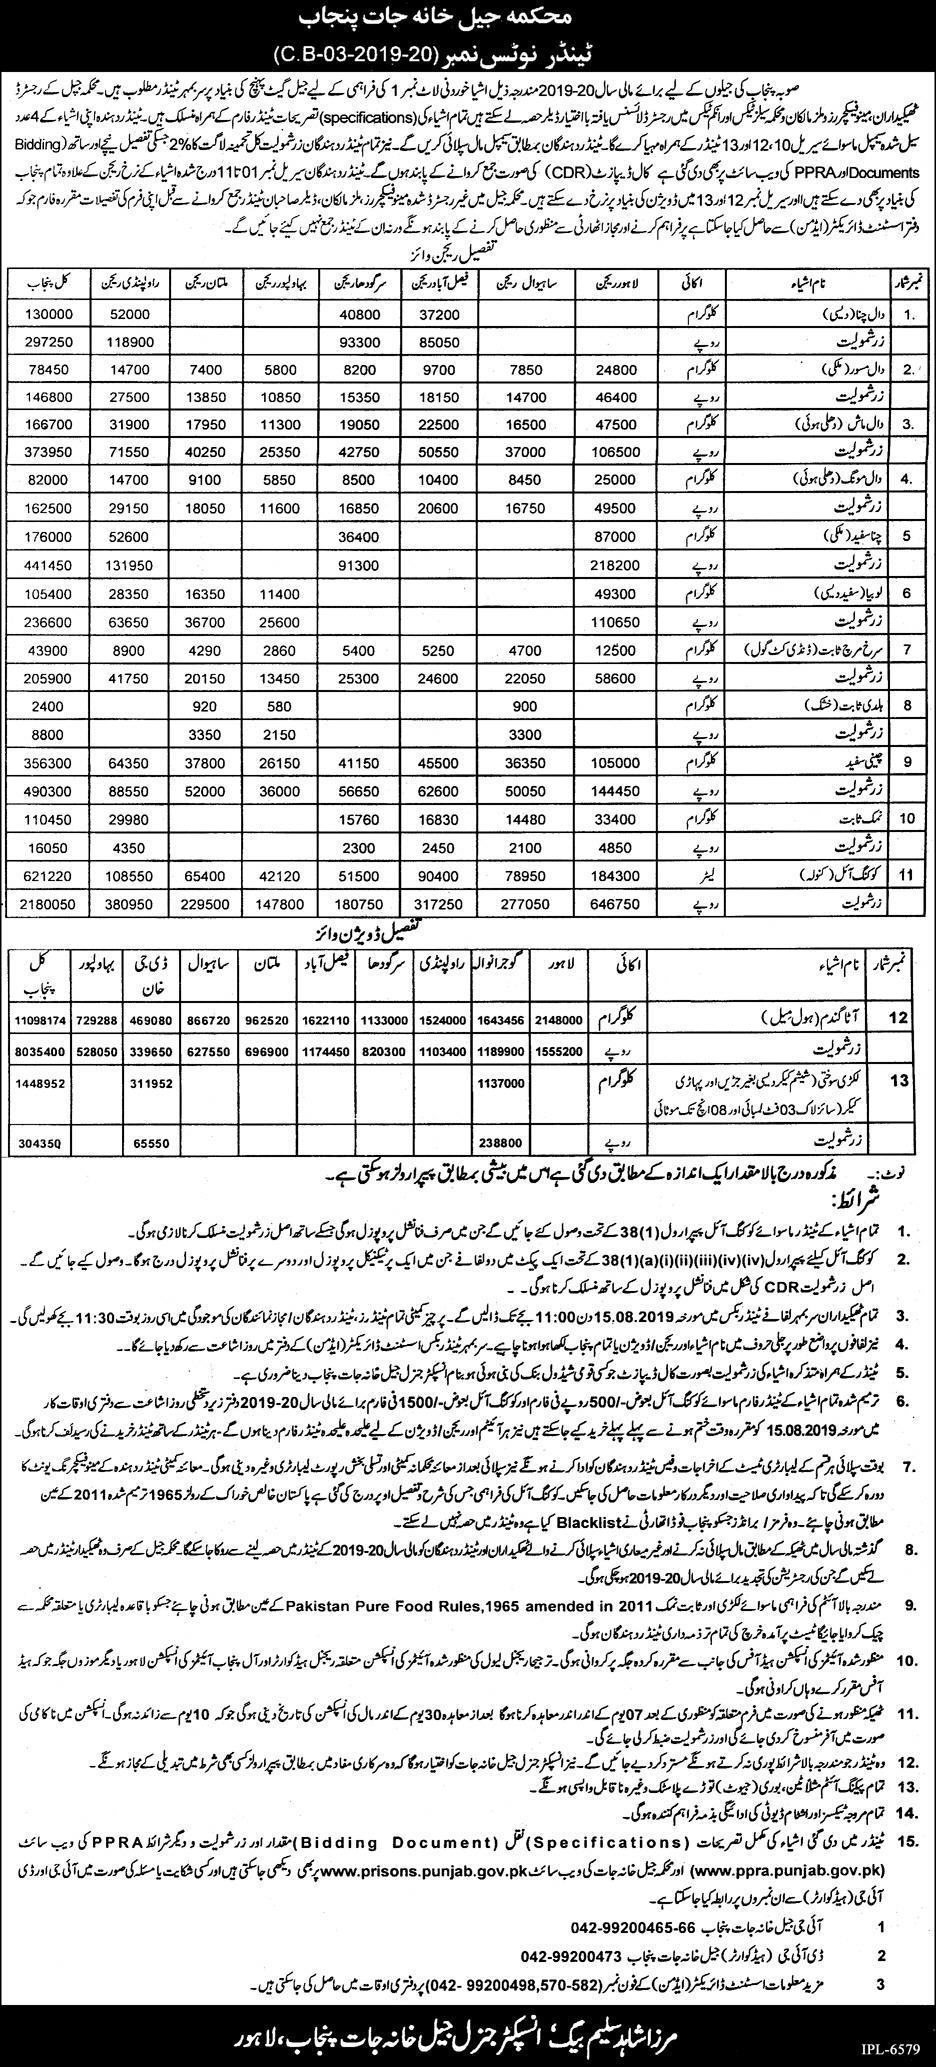 محکمہ جیل خانہ جات پنجاب
ٹینڈر نوٹس نمبر (C.B-03-2019-20)
صوبہ پنجاب کی جیلوں کے لیے برائے مالی سال 20-2019 مندرجہ ذیل اشیا خوردنی لاٹ نمبر 1 کی فراہمی کے لیے جیل گیٹ پہنچ کی بنیاد پر سربمہر ٹینڈر مطلوب ہیں۔ محکمہ جیل کے رجسٹرڈ
ٹھیکیداران مینوفیکچررز و ملز مالکان و محکمہ سیلز ٹیکس اور انکم ٹیکس میں رجسٹرڈ لائسنس یافتہ با اختیار ڈیلر حصہ لے سکتے ہیں تمام اشیاء کی (specifications) تصریحات ٹینڈر فارم کے ہمراہ منسلک ہیں۔ ٹینڈر دہندہ اپنی اشیاء کے 4 عدد
سیل شدہ سیمپل ماسوائے سیریل 10، 12 اور 13 ٹینڈر کے ہمراہ مہیا کرے گا۔ نیز تمام ٹینڈر دہندگان بمطابق سیمپل مال سپلائی کریں گے۔ ٹینڈر دہندگان زرشمولیت کل تخمینہ لاگت کا %2 جسکی تفصیل نیچے اور ساتھ (Bidding
Documents اور PPRA کی ویب سائٹ پر بھی دی گئی ہے کال ڈیپازٹ (CDR) کی صورت جمع کروانے کے پابند ہوں گے۔ ٹینڈر دہندگان سیریل نمبر 01 تا 11 درج شدہ اشیاء کے نرخ ریجن کے علاوہ تمام پنجاب
کی بنیاد پر بھی دے سکتے ہیں اور سیریل نمبر 12 اور 13 میں ڈویژن کی بنیاد پر نرخ دے سکتے ہیں۔ محکمہ جیل میں غیر رجسٹرڈ شدہ مینوفیکچررز، ملز مالکان، ڈیلر صاحبان ٹینڈر جمع کروانے سے قبل اپنی فرم کی تفصیلات مقررہ فارم جو کہ
دفتر اسسٹنٹ ڈائریکٹر (ایڈمن) سے حاصل کیا جا سکتا ہے پر فراہم کرنے اور مجاز اتھارٹی سے منظوری حاصل کرنے کے پابند ہونگے ورنہ ان کے ٹینڈر جمع نہیں کیئے جائیں گے۔
تفصیل ریجن وائز
نمبر شمار نام اشیاء اکائی لاہور ریجن ساہیوال ریجن فیصل آباد ریجن سرگودھا ریجن بہاولپور ریجن ملتان ریجن راولپنڈی ریجن کل پنجاب
1. دال چنا (دیسی) کلوگرام 37200 40800 52000 130000
زرشمولیت روپے 85050 93300 118900 297250
2. دال مسور (ملکی) کلوگرام 24800 7850 9700 8200 5800 7400 14700 78450
زرشمولیت روپے 46400 14700 18150 15350 10850 13850 27500 146800
3. دال ماش (دھلی ہوئی) کلوگرام 47500 16500 22500 19050 11300 17950 31900 166700
زرشمولیت روپے 106500 37000 50550 42750 25350 40250 71550 373950
4. دال مونگ (دھلی ہوئی) کلوگرام 25000 8450 10400 8500 5850 9100 14700 82000
زرشمولیت روپے 49500 16750 20600 16850 11600 18050 29150 162500
5 چنا سفید (ملکی) کلوگرام 87000 36400 52600 176000
زرشمولیت روپے 218200 91300 131950 441450
6 لوبیا (سفید دیسی) کلوگرام 49300 11400 16350 28350 105400
زرشمولیت روپے 110650 25600 36700 63650 236600
7 سرخ مرچ ثابت (ڈنڈی کٹ گول) کلوگرام 12500 4700 5250 5400 2860 4290 8900 43900
زرشمولیت روپے 58600 22050 24600 25300 13450 20150 41750 205900
8 ہلدی ثابت (خشک) کلوگرام 900 580 920 2400
زرشمولیت روپے 3300 2150 3350 8800
9 چینی سفید کلوگرام 105000 36350 45500 41150 26150 37800 64350 356300
زرشمولیت روپے 144450 50050 62600 56650 36000 52000 88550 490300
10 نمک ثابت کلوگرام 33400 14480 16830 15760 29980 110450
زرشمولیت روپے 4850 2100 2450 2300 4350 16050
11 کوکنگ آئل (کنولہ) لیٹر 184300 78950 90400 51500 42120 65400 108550 621220
زرشمولیت روپے 646750 277050 317250 180750 147800 229500 380950 2180050
تفصیل ڈویژن وائز
نمبر شمار نام اشیاء اکائی لاہور گوجرانوالہ راولپنڈی سرگودھا فیصل آباد ملتان ساہیوال ڈی جی خان بہاولپور کل پنجاب
12 آٹا گندم (ہول میل) کلوگرام 2148000 1643456 1524000 1133000 1622110 962520 866720 469080 729288 11098174
زرشمولیت روپے 1555200 1189900 1103400 820300 1174450 696900 627550 339650 528050 8035400
13 لکڑی سوختنی (شیشم کیکر دیسی بغیر جڑیں اور پہاڑی کلوگرام 1137000 311952 1448952
کیکر (سائز لاک 03 فٹ لمبائی اور 08 انچ تک موٹائی
زرشمولیت روپے 238800 65550 304350
نوٹ:۔ مذکورہ درج بالا مقدار ایک اندازہ کے مطابق دی گئی ہے اس میں بیشی بمطابق پیپرا رولز ہو سکتی ہے۔
شرائط:
1. تمام اشیاء کے ٹینڈر ماسوائے کوکنگ آئل پیپرا رول (1)38 کے تحت وصول کئے جائیں گے جن میں صرف فنانشل پروپوزل ہوگی جسکے ساتھ اصل زرشمولیت منسلک کرنا لازمی ہوگی۔
2. کوکنگ آئل کیلئے پیپرا رول 38(1)(a)(i)(ii)(iii)(iv)(iv) کے تحت ایک پیکٹ میں دو لفافے جن میں ایک پر ٹیکنیکل پروپوزل اور دوسرے پر فنانشل پروپوزل درج ہوگا۔ وصول کیے جائیں گے۔
اصل زرشمولیت CDR کی شکل میں فنانشل پروپوزل کے ساتھ منسلک کرنا ہوگی۔
3. تمام ٹھیکیداران سربمہر لفافے ٹینڈر بکس میں مورخہ 15.08.2019 دن 11:00 بجے تک ڈالیں گے۔ پرچیز کمیٹی تمام ٹینڈرز، ٹینڈر دہندگان / مجاز نمائندگان کی موجودگی میں اسی روز بوقت 11:30 بجے کھولیں گی۔
4. نیز لفافوں پر واضح طور پر جلی حروف میں نام اشیاء اور ریجن / ڈویژن یا تمام پنجاب لکھا ہوا ہونا چاہیے۔ سربمہر ٹینڈر بکس اسسٹنٹ ڈائریکٹر (ایڈمن) کے دفتر میں روز اشاعت سے رکھ دیا جائے گا۔
5. ٹینڈر کے ہمراہ متذکرہ اشیاء کی زرشمولیت بصورت کال ڈیپازٹ جو کسی قومی شیڈول بنک کی بنی ہوئی ہو بنام انسپکٹر جنرل جیل خانہ جات پنجاب دینا ضروری ہے۔
6. ترمیم شدہ تمام اشیاء کے ٹینڈر فارم ماسوائے کوکنگ آئل بعوض -/500 روپے فی فارم اور کوکنگ آئل بعوض -/1500 فی فارم برائے مالی سال 20-2019 دفتر زیر دستخطی روز اشاعت سے دفتری اوقات کار
میں مورخہ 15.08.2019 کو مقررہ وقت ختم ہونے سے پہلے پہلے خرید کیے جاسکتے ہیں نیز ہر آئیٹم اور ریجن / ڈویژن کے لیے علیحدہ علیحدہ ٹینڈر فارم دینا ہوں گے۔ ہر ٹینڈر کے ساتھ ٹینڈر خریدنے کی رسید لف کرنا ہوگی۔
7. بوقت سپلائی ہر قسم کے لیبارٹری ٹیسٹ کے اخراجات و فیس ٹینڈر دہندگان کو ادا کرنے ہونگے نیز سپلائی بعد از معائنہ محکمانہ کمیٹی اور تسلی بخش رپورٹ لیبارٹری وغیرہ دینی ہوگی۔ معائنہ کمیٹی ٹینڈر دہندہ کے مینوفیکچرنگ یونٹ کا
دورہ کر سکے گی تاکہ پیداواری صلاحیت اور دیگر درکار معلومات حاصل کی جاسکیں۔ کوکنگ آئل کی فراہمی جس کی شرح تفصیل اوپر درج کی گئی ہے پاکستان خالص خوراک کے رولز 1965 ترمیم شدہ 2011 کے عین
مطابق ہونی چاہیئے۔ وہ فرمز / برانڈز جسکو پنجاب فوڈ اتھارٹی نے Blacklist کیا ہے وہ ٹینڈر میں حصہ نہیں لے سکتے۔
8. گذشتہ مالی سال میں ٹھیکہ کے مطابق مال سپلائی نہ کرنے اور غیر معیاری اشیاء سپلائی کرنے والے ٹھیکیداران اور ٹینڈر دہندگان کو مالی سال 20-2019 کے ٹینڈر میں حصہ لینے سے روکا جا سکے گا۔ محکمہ جیل کے صرف وہ ٹھیکیدار ٹینڈر میں حصہ
لے سکیں گے جن کی رجسٹریشن کی تجدید برائے مالی سال 20-2019 ہو چکی ہوگی۔
9. مندرجہ بالا آئٹم کی فراہمی ماسوائے لکڑی اور ثابت نمک Pakistan Pure Food Rules,1965 amended in 2011 کے عین مطابق ہونی چاہیے جسکو باقاعدہ لیبارٹری یا متعلقہ محکمہ سے
چیک کروایا جائیگا ٹیسٹ پر آمدہ خرچ کی تمام تر ذمہ داری ٹینڈر دہندگان ہوگی۔
10. منظور شدہ آئیٹمز کی انسپکشن ہیڈ آفس کی جانب سے مقررہ کردہ جگہ پر کروانی ہوگی۔ ترجیحاً ریجنل لیول کی منظور شدہ آئیٹمز کی انسپکشن متعلقہ ریجنل ہیڈ کوارٹر اور آل پنجاب آئیٹمز کی انسپکشن لاہور یا دیگر موزوں جگہ جو کہ ہیڈ
آفس مقرر کرے وہاں کراونی ہوگی۔
11. ٹھیکہ منظور ہونے کی صورت میں فرم متعلقہ کو منظوری کے بعد 07 یوم کے اندر اندر معاہدہ کرنا ہوگا بعد از معاہدہ 30 یوم کے اندر مال کی انسپکشن کی تاریخ دینی ہوگی جو کہ 10 یوم سے زائد نہ ہوگی۔ انسپکشن میں ناکامی کی
صورت میں آفر منسوخ کردی جائے گی اور زرشمولیت ضبط کر لی جائے گی۔
12. وہ ٹینڈر جو مندرجہ بالا شرائط پوری نہ کرتے ہونگے مسترد کر دیے جائیں گے۔ نیز انسپکٹر جنرل جیل خانہ جات کو اختیار ہوگا کہ وہ سرکاری مفاد میں بمطابق پیپرا رولز کسی بھی شرط میں تبدیلی کے مجاز ہونگے۔
13. تمام پیکنگ آئٹم مثلاً ٹین، بوری (جیوٹ) توڑے پلاسٹک وغیرہ ناقابل واپسی ہونگے۔
14. تمام مروجہ ٹیکسز اور اشٹام ڈیوٹی کی ادائیگی بذمہ فراہم کنندہ ہوگی۔
15. ٹینڈر میں دی گئی اشیاء کی مکمل تصریحات (Specifications) نقل (Bidding Document) مقدار اور زرشمولیت و دیگر شرائط PPRA کی ویب سائٹ
(www.ppra.punjab.gov.pk) اور محکمہ جیل خانہ جات کی ویب سائٹ www.prisons.punjab.gov.pk پر بھی دیکھی جاسکتی ہیں اور کسی شکایت یا مسئلہ کی صورت میں آئی جی اور ڈی
آئی جی (ہیڈ کوارٹر) سے ان نمبروں پر رابطہ کیا جاسکتا ہے۔
1 آئی جی جیل خانہ جات پنجاب 042-99200465-66
2 ڈی آئی جی (ہیڈ کوارٹر) جیل خانہ جات پنجاب 042-99200473
3 مزید معلومات اسسٹنٹ ڈائریکٹر (ایڈمن) کے فون نمبر (042- 99200498,570-582) پر دفتری اوقات میں حاصل کی جاسکتی ہیں۔
مرزا شاہد سلیم بیگ، انسپکٹر جنرل جیل خانہ جات پنجاب، لاہور
IPL-6579